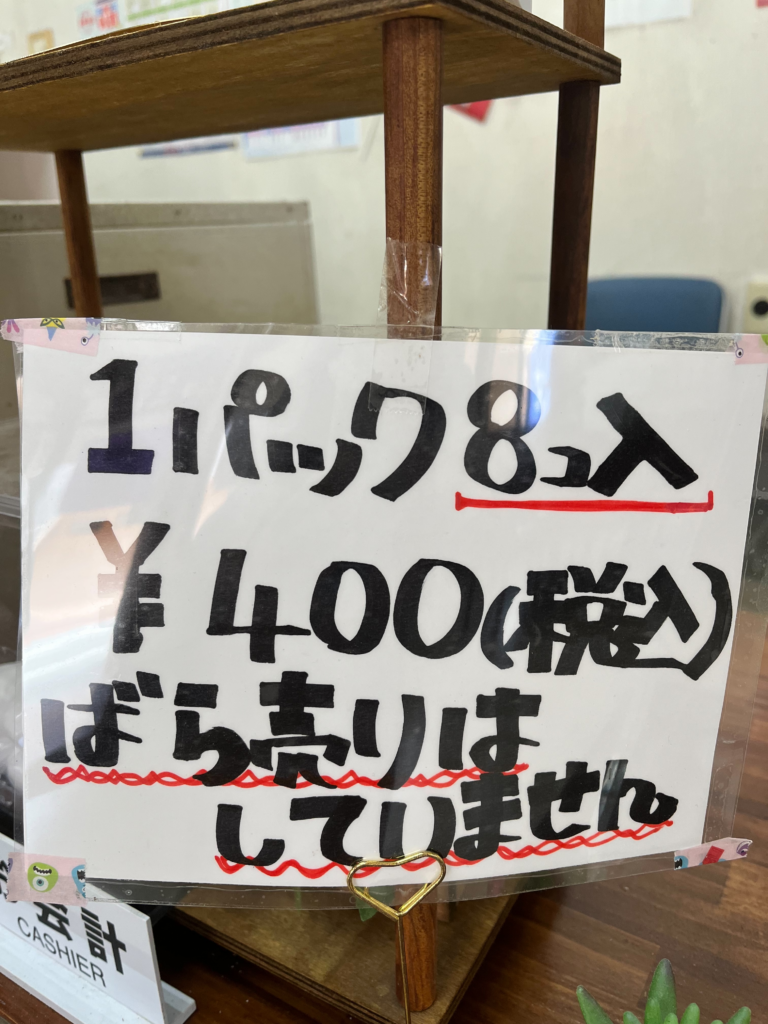 1パック8コ入
¥400(税込)
ばら売りは
していません
会計
CASHIER